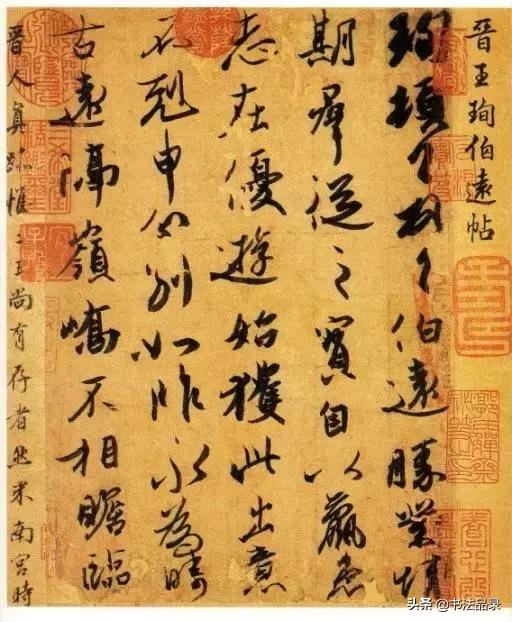 晉王珣伯遠帖
珣頓首頓首伯遠勝業情
期羣從之寶自以羸患
志在優遊始獲此出意
不剋申分別如昨永為疇
古遠隔嶺嶠不相瞻臨
晉人真跡惟二王尚有存者然米南宮時
头条 @书法品录